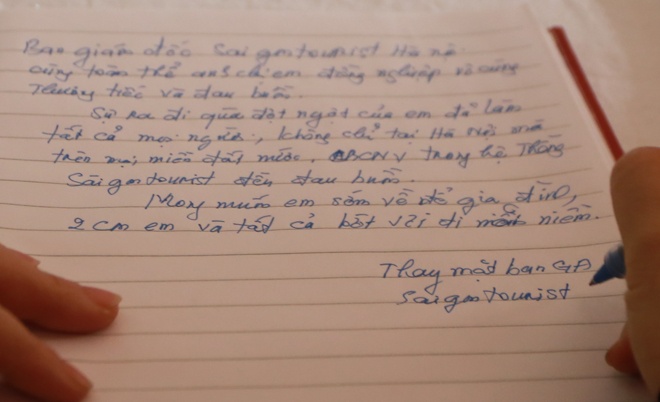 Ban giám đốc Saigontourist Hà nội
cùng toàn thể anh chị em đồng nghiệp vô cùng
Thương tiếc và đau buồn.
Sự ra đi quá đột ngột của em đã làm
tất cả mọi người, không chỉ tại Hà Nội mà
trên mọi miền đất nước, CBCNV trong hệ Thống
Saigontourist đến đau buồn.
Mong muốn em sớm về để gia đình,
2 con em và tất cả bớt vơi đi niềm.
Thay mặt ban GĐ
Saigontourist